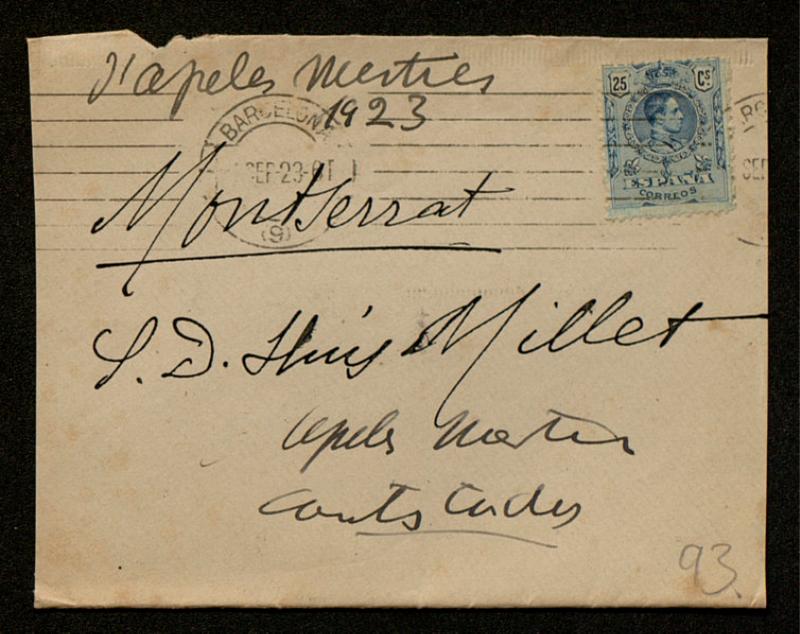 d'Apeles Mestres
1923
25 Cs
BARCELONA
SEP-23
(9)
ESPAÑA
CORREOS
Montserrat
S. D. Lluís Millet
Apeles Mestres
Contestades
93.